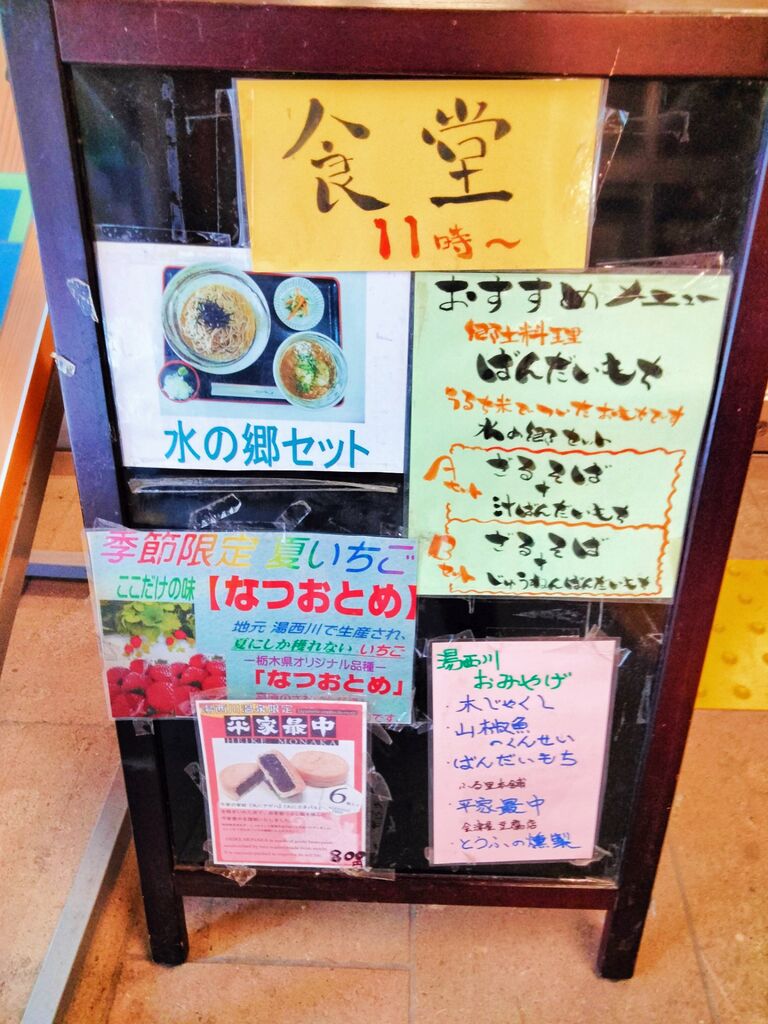 食堂
11時～
水の郷セット
おすすめメニュー
郷土料理
ばんだいもち
うるち米でついたおもちです
水の郷セット
Aセット
ざるそば
+
汁ばんだいもち
Bセット
ざるそば
+
じゅうねんばんだいもち
季節限定 夏いちご
ここだけの味【なつおとめ】
地元 湯西川で生産され、
夏にしか穫れない いちご
―栃木県オリジナル品種―
「なつおとめ」
です
湯西川温泉限定
平家最中
HEIKE MONAKA
6
800円
湯西川
おみやげ
・木じゃくし
・山椒魚
のくんせい
・ばんだいもち
ふる里本舗
・平家最中
会津屋豆腐店
・とうふの燻製